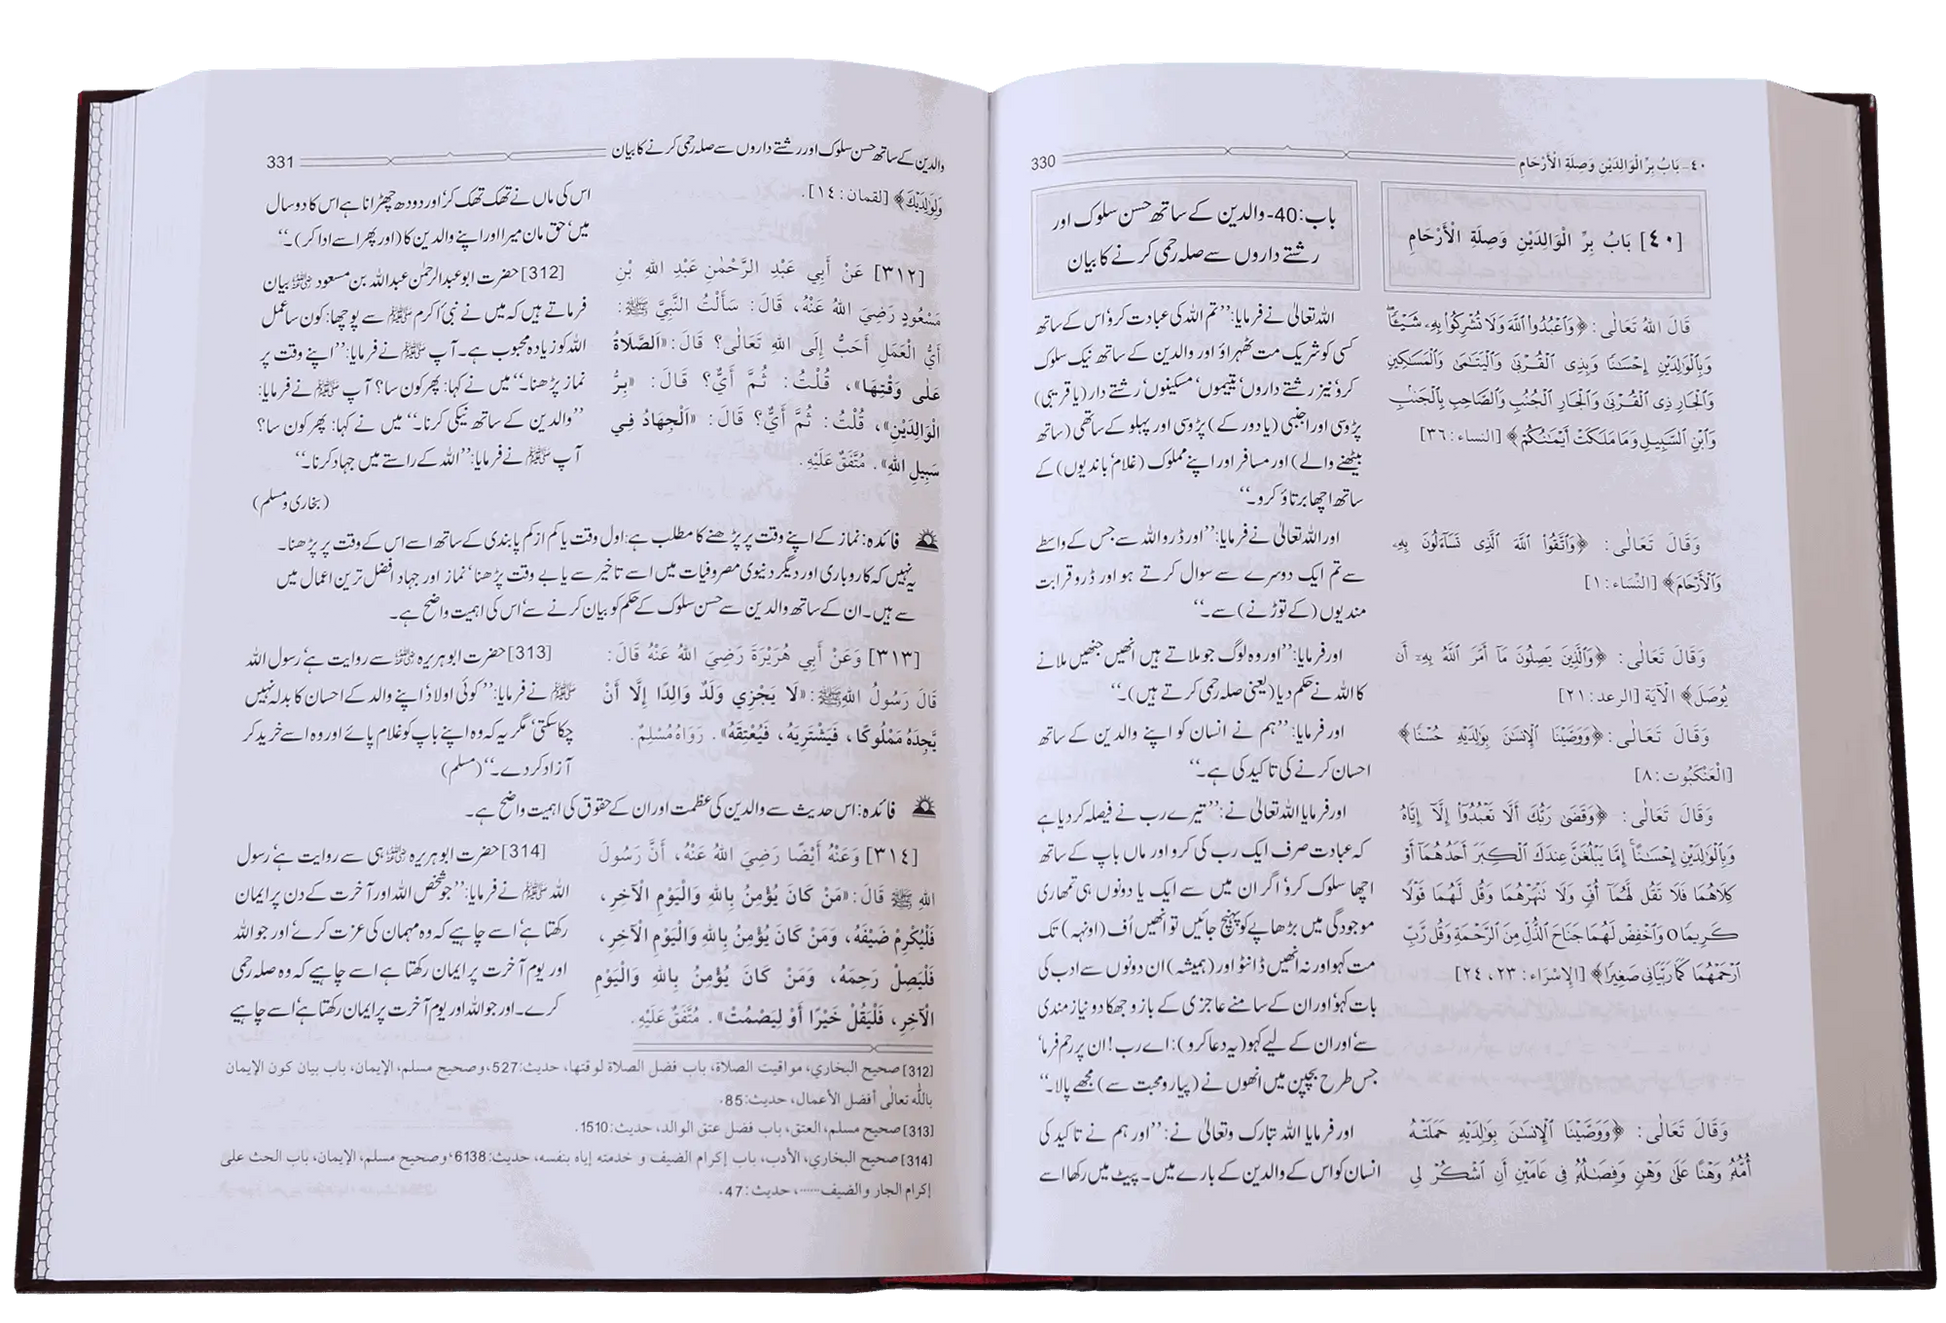 ٤٠- بَابُ بِرِّ الْوَالِدَيْنِ وَصِلَةِ الْأَرْحَامِ 330
[٤٠] بَابُ بِرِّ الْوَالِدَيْنِ وَصِلَةِ الْأَرْحَامِ
باب:40- والدین کے ساتھ حسن سلوک اور
رشتے داروں سے صلہ رحمی کرنے کا بیان
قَالَ اللهُ تَعَالٰی: ﴿وَٱعْبُدُوا۟ ٱللَّهَ وَلَا تُشْرِكُوا۟ بِهِۦ شَيْـًٔا
وَبِٱلْوَٰلِدَيْنِ إِحْسَـٰنًا وَبِذِى ٱلْقُرْبَىٰ وَٱلْيَتَـٰمَىٰ وَٱلْمَسَـٰكِينِ
وَٱلْجَارِ ذِى ٱلْقُرْبَىٰ وَٱلْجَارِ ٱلْجُنُبِ وَٱلصَّاحِبِ بِٱلْجَنۢبِ
وَٱبْنِ ٱلسَّبِيلِ وَمَا مَلَكَتْ أَيْمَـٰنُكُمْ﴾ [النساء: ٣٦]
اللہ تعالیٰ نے فرمایا: ’’تم اللہ کی عبادت کرو‘ اس کے ساتھ
کسی کو شریک مت ٹھہراؤ اور والدین کے ساتھ نیک سلوک
کرو‘ نیز رشتے داروں‘ یتیموں‘ مسکینوں‘ رشتے دار (یا قریبی)
پڑوسی اور اجنبی (یا دور کے) پڑوسی اور پہلو کے ساتھی (ساتھ
بیٹھنے والے) اور مسافر اور اپنے مملوک (غلام‘ باندیوں) کے
ساتھ اچھا برتاؤ کرو۔‘‘
وَقَالَ تَعَالٰی: ﴿وَٱتَّقُوا۟ ٱللَّهَ ٱلَّذِى تَسَآءَلُونَ بِهِۦ
وَٱلْأَرْحَامَ﴾ [النِّساء: ١]
اور اللہ تعالیٰ نے فرمایا: ’’اور ڈرو اللہ سے جس کے واسطے
سے تم ایک دوسرے سے سوال کرتے ہو اور ڈرو قرابت
مندیوں (کے توڑنے) سے۔‘‘
وَقَالَ تَعَالٰی: ﴿وَٱلَّذِينَ يَصِلُونَ مَآ أَمَرَ ٱللَّهُ بِهِۦٓ أَن
يُوصَلَ﴾ الْآيَة [الرعد: ٢١]
اور فرمایا: ’’اور وہ لوگ جو ملاتے ہیں انھیں جنھیں ملانے
کا اللہ نے حکم دیا (یعنی صلہ رحمی کرتے ہیں)۔‘‘
وَقَالَ تَعَالٰی: ﴿وَوَصَّيْنَا ٱلْإِنسَـٰنَ بِوَٰلِدَيْهِ حُسْنًا﴾
[الْعَنْكَبُوت: ٨]
اور فرمایا: ’’ہم نے انسان کو اپنے والدین کے ساتھ
احسان کرنے کی تاکید کی ہے۔‘‘
وَقَالَ تَعَالٰی: ﴿وَقَضَىٰ رَبُّكَ أَلَّا تَعْبُدُوٓا۟ إِلَّآ إِيَّاهُ
وَبِٱلْوَٰلِدَيْنِ إِحْسَـٰنًا إِمَّا يَبْلُغَنَّ عِندَكَ ٱلْكِبَرَ أَحَدُهُمَآ أَوْ
كِلَاهُمَا فَلَا تَقُل لَّهُمَآ أُفٍّ وَلَا تَنْهَرْهُمَا وَقُل لَّهُمَا قَوْلًا
كَرِيمًا ٥ وَٱخْفِضْ لَهُمَا جَنَاحَ ٱلذُّلِّ مِنَ ٱلرَّحْمَةِ وَقُل رَّبِّ
ٱرْحَمْهُمَا كَمَا رَبَّيَانِى صَغِيرًا﴾ [الإِسْرَاء: ٢٣، ٢٤]
اور فرمایا اللہ تعالیٰ نے: ’’تیرے رب نے فیصلہ کر دیا ہے
کہ عبادت صرف ایک رب کی کرو اور ماں باپ کے ساتھ
اچھا سلوک کرو‘ اگر ان میں سے ایک یا دونوں ہی تمھاری
موجودگی میں بڑھاپے کو پہنچ جائیں تو انھیں اُف (اونہہ) تک
مت کہو اور نہ انھیں ڈانٹو اور (ہمیشہ) ان دونوں سے ادب کی
بات کہو‘ اور ان کے سامنے عاجزی کے بازو جھکا دو نیاز مندی
سے‘ اور ان کے لیے کہو (یہ دعا کرو): اے رب! ان پر رحم فرما‘
جس طرح بچپن میں انھوں نے (پیار و محبت سے) مجھے پالا۔‘‘
وَقَالَ تَعَالٰی: ﴿وَوَصَّيْنَا ٱلْإِنسَـٰنَ بِوَٰلِدَيْهِ حَمَلَتْهُ
أُمُّهُۥ وَهْنًا عَلَىٰ وَهْنٍ وَفِصَـٰلُهُۥ فِى عَامَيْنِ أَنِ ٱشْكُرْ لِى
اور فرمایا اللہ تبارک وتعالیٰ نے: ’’اور ہم نے تاکید کی
انسان کو اس کے والدین کے بارے میں۔ پیٹ میں رکھا اسے
والدین کے ساتھ حسن سلوک اور رشتے داروں سے صلہ رحمی کرنے کا بیان 331
وَلِوَٰلِدَيْكَ﴾ [لقمان: ١٤].
اس کی ماں نے تھک تھک کر‘ اور دودھ چھڑانا ہے اس کا دو سال
میں‘ حق مان میرا اور اپنے والدین کا (اور پھر اسے ادا کر)۔‘‘
[٣١٢] عَنْ أَبِي عَبْدِ الرَّحْمٰنِ عَبْدِ اللهِ بْنِ
مَسْعُودٍ رَضِيَ اللهُ عَنْهُ، قَالَ: سَأَلْتُ النَّبِيَّ ﷺ:
أَيُّ الْعَمَلِ أَحَبُّ إِلَى اللهِ تَعَالَى؟ قَالَ: «اَلصَّلَاةُ
عَلٰى وَقْتِهَا»، قُلْتُ: ثُمَّ أَيٌّ؟ قَالَ: «بِرُّ
الْوَالِدَيْنِ»، قُلْتُ: ثُمَّ أَيٌّ؟ قَالَ: «اَلْجِهَادُ فِي
سَبِيلِ اللهِ». مُتَّفَقٌ عَلَيْهِ.
[312] حضرت ابوعبدالرحمٰن عبداللہ بن مسعود ؓ بیان
فرماتے ہیں کہ میں نے نبیٔ اکرم ﷺ سے پوچھا: کون سا عمل
اللہ کو زیادہ محبوب ہے۔ آپ ﷺ نے فرمایا: ’’اپنے وقت پر
نماز پڑھنا۔‘‘ میں نے کہا: پھر کون سا؟ آپ ﷺ نے فرمایا:
’’والدین کے ساتھ نیکی کرنا۔‘‘ میں نے کہا: پھر کون سا؟
آپ ﷺ نے فرمایا: ’’اللہ کے راستے میں جہاد کرنا۔‘‘
(بخاری و مسلم)
فائدہ: نماز کے اپنے وقت پر پڑھنے کا مطلب ہے: اول وقت یا کم از کم پابندی کے ساتھ اسے اس کے وقت پر پڑھنا۔
یہ نہیں کہ کاروباری اور دیگر دنیوی مصروفیات میں اسے تاخیر سے یا بے وقت پڑھنا‘ نماز اور جہاد افضل ترین اعمال میں
سے ہیں۔ ان کے ساتھ والدین سے حسن سلوک کے حکم کو بیان کرنے سے‘ اس کی اہمیت واضح ہے۔
[٣١٣] وَعَنْ أَبِي هُرَيْرَةَ رَضِيَ اللهُ عَنْهُ قَالَ:
قَالَ رَسُولُ اللهِ ﷺ: «لَا يَجْزِي وَلَدٌ وَالِدًا إِلَّا أَنْ
يَّجِدَهُ مَمْلُوكًا، فَيَشْتَرِيَهُ، فَيُعْتِقَهُ». رَوَاهُ مُسْلِمٌ.
[313] حضرت ابوہریرہ ؓ سے روایت ہے‘ رسول اللہ
ﷺ نے فرمایا: ’’کوئی اولاد‘ اپنے والد کے احسان کا بدلہ نہیں
چکا سکتی‘ مگر یہ کہ وہ اپنے باپ کو غلام پائے اور وہ اسے خرید کر
آزاد کر دے۔‘‘ (مسلم)
فائدہ: اس حدیث سے والدین کی عظمت اور ان کے حقوق کی اہمیت واضح ہے۔
[٣١٤] وَعَنْهُ أَيْضًا رَضِيَ اللهُ عَنْهُ، أَنَّ رَسُولَ
اللهِ ﷺ قَالَ: «مَنْ كَانَ يُؤْمِنُ بِاللهِ وَالْيَوْمِ الْآخِرِ،
فَلْيُكْرِمْ ضَيْفَهُ، وَمَنْ كَانَ يُؤْمِنُ بِاللهِ وَالْيَوْمِ الْآخِرِ،
فَلْيَصِلْ رَحِمَهُ، وَمَنْ كَانَ يُؤْمِنُ بِاللهِ وَالْيَوْمِ
الْآخِرِ، فَلْيَقُلْ خَيْرًا أَوْ لِيَصْمُتْ». مُتَّفَقٌ عَلَيْهِ.
[314] حضرت ابوہریرہ ؓ ہی سے روایت ہے‘ رسول
اللہ ﷺ نے فرمایا: ’’جو شخص اللہ اور آخرت کے دن پر ایمان
رکھتا ہے‘ اسے چاہیے کہ وہ مہمان کی عزت کرے‘ اور جو اللہ
اور یوم آخرت پر ایمان رکھتا ہے اسے چاہیے کہ وہ صلہ رحمی
کرے۔ اور جو اللہ اور یوم آخرت پر ایمان رکھتا ہے‘ اسے چاہیے
[312] صحيح البخاري، مواقيت الصلاة، باب فضل الصلاة لوقتها، حديث:527، وصحيح مسلم، الإيمان، باب بيان كون الإيمان
بالله تعالى أفضل الأعمال، حديث:85.
[313] صحيح مسلم، العتق، باب فضل عتق الوالد، حديث:1510.
[314] صحيح البخاري، الأدب، باب إكرام الضيف و خدمته إياه بنفسه، حديث:6138، وصحيح مسلم، الإيمان، باب الحث على
إكرام الجار والضيف......، حديث:47.